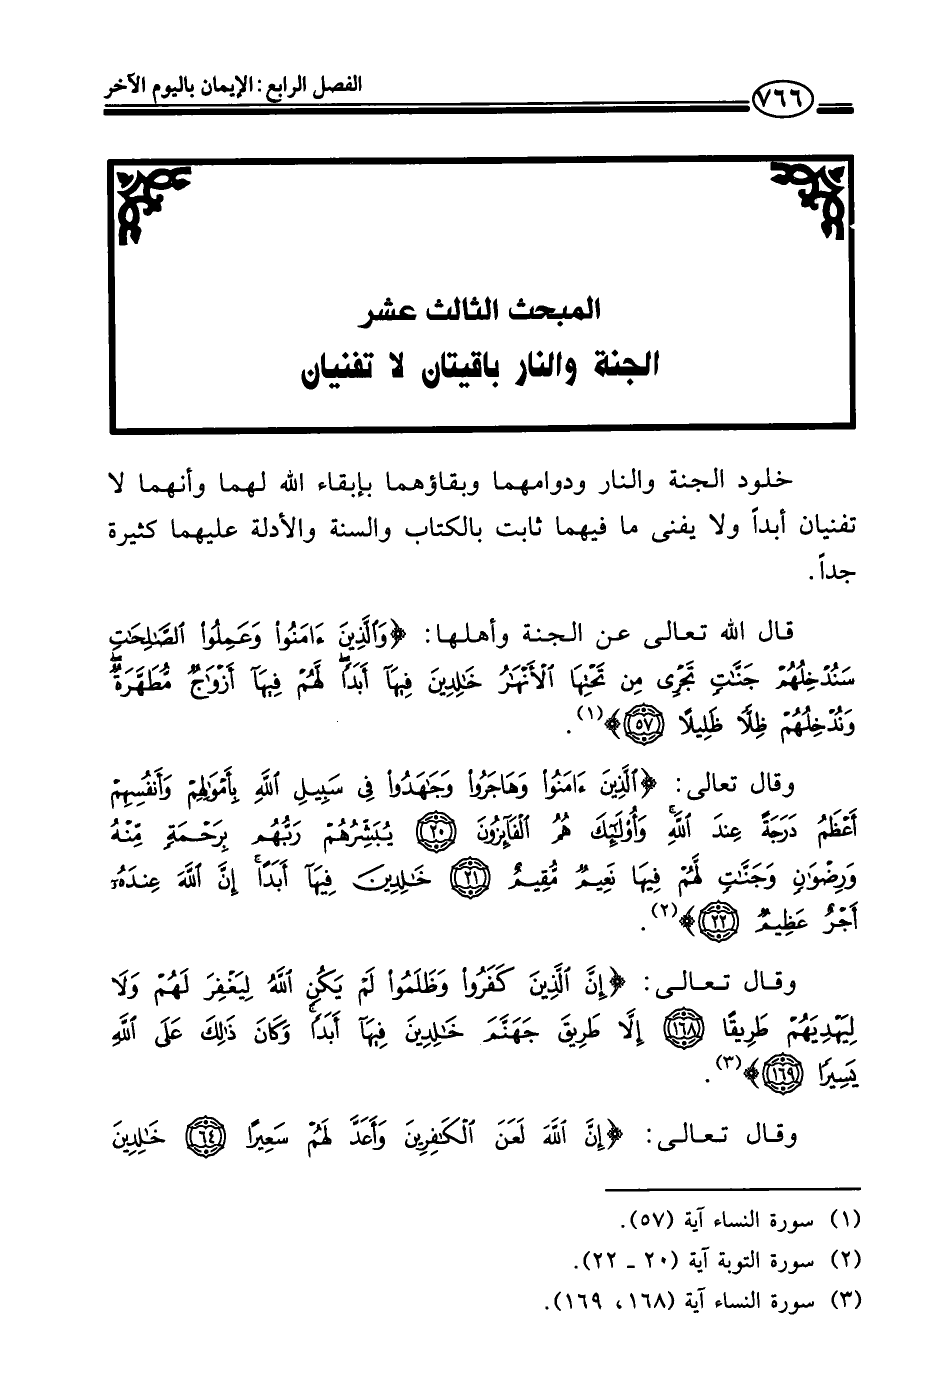 ٧٦٦
الفصل الرابع: الإيمان باليوم الآخر
المبحث الثالث عشر
الجنة والنار باقيتان لا تفنيان
خلود الجنة والنار ودوامهما وبقاؤهما بإبقاء الله لهما وأنهما لا
تفنيان أبداً ولا يفنى ما فيهما ثابت بالكتاب والسنة والأدلة عليهما كثيرة
جداً.
قال الله تعالى عن الجنة وأهلها: ﴿وَٱلَّذِينَ ءَامَنُوا۟ وَعَمِلُوا۟ ٱلصَّـٰلِحَـٰتِ
سَنُدْخِلُهُمْ جَنَّـٰتٍ تَجْرِى مِن تَحْتِهَا ٱلْأَنْهَـٰرُ خَـٰلِدِينَ فِيهَآ أَبَدًا ۖ لَّهُمْ فِيهَآ أَزْوَٰجٌ مُّطَهَّرَةٌ ۖ
وَنُدْخِلُهُمْ ظِلًّا ظَلِيلًا ٥٧﴾(١).
وقال تعالى: ﴿ٱلَّذِينَ ءَامَنُوا۟ وَهَاجَرُوا۟ وَجَـٰهَدُوا۟ فِى سَبِيلِ ٱللَّهِ بِأَمْوَٰلِهِمْ وَأَنفُسِهِمْ
أَعْظَمُ دَرَجَةً عِندَ ٱللَّهِ ۚ وَأُو۟لَـٰٓئِكَ هُمُ ٱلْفَآئِزُونَ ٢٠ يُبَشِّرُهُمْ رَبُّهُم بِرَحْمَةٍ مِّنْهُ
وَرِضْوَٰنٍ وَجَنَّـٰتٍ لَّهُمْ فِيهَا نَعِيمٌ مُّقِيمٌ ٢١ خَـٰلِدِينَ فِيهَآ أَبَدًا ۚ إِنَّ ٱللَّهَ عِندَهُۥٓ
أَجْرٌ عَظِيمٌ ٢٢﴾(٢).
وقال تعالى: ﴿إِنَّ ٱلَّذِينَ كَفَرُوا۟ وَظَلَمُوا۟ لَمْ يَكُنِ ٱللَّهُ لِيَغْفِرَ لَهُمْ وَلَا
لِيَهْدِيَهُمْ طَرِيقًا ١٦٨ إِلَّا طَرِيقَ جَهَنَّمَ خَـٰلِدِينَ فِيهَآ أَبَدًا ۚ وَكَانَ ذَٰلِكَ عَلَى ٱللَّهِ
يَسِيرًا ١٦٩﴾(٣).
وقال تعالى: ﴿إِنَّ ٱللَّهَ لَعَنَ ٱلْكَـٰفِرِينَ وَأَعَدَّ لَهُمْ سَعِيرًا ٦٤ خَـٰلِدِينَ
(١) سورة النساء آية (٥٧).
(٢) سورة التوبة آية (٢٠ ـ ٢٢).
(٣) سورة النساء آية (١٦٨، ١٦٩).